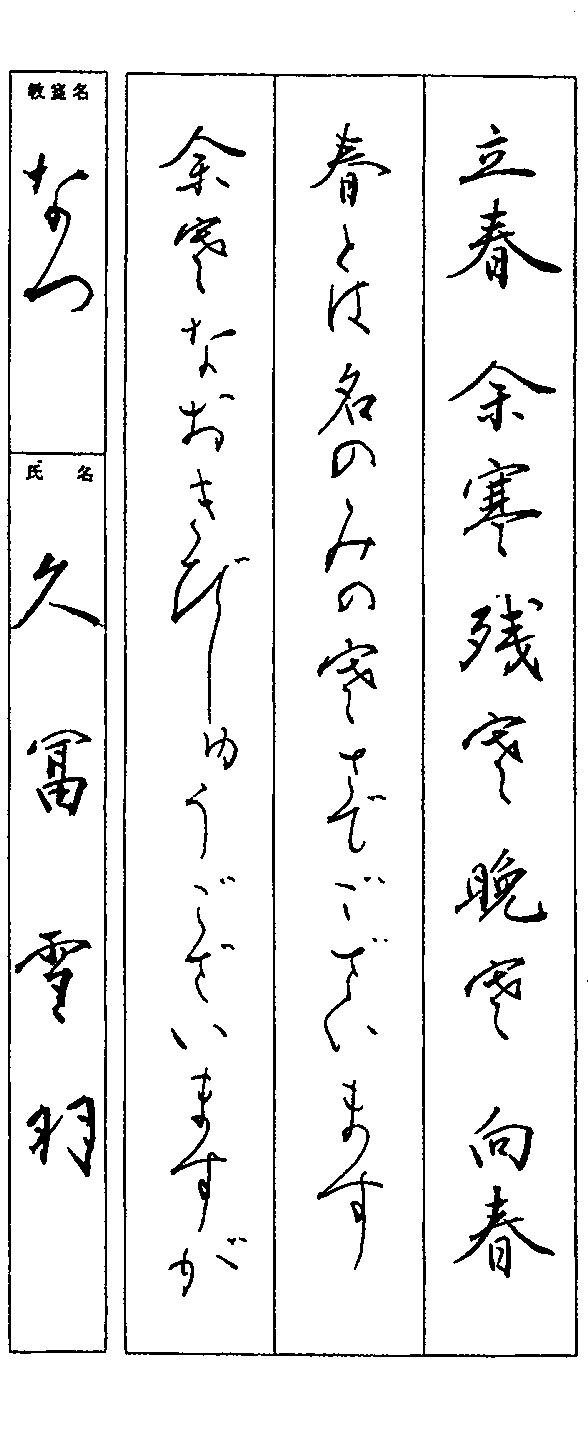 立春 余寒 残寒 晩寒 向春
春とは名のみの寒さでございます
余寒なおきびしゅうございますが
教室名
なつ
氏名
久冨雪羽